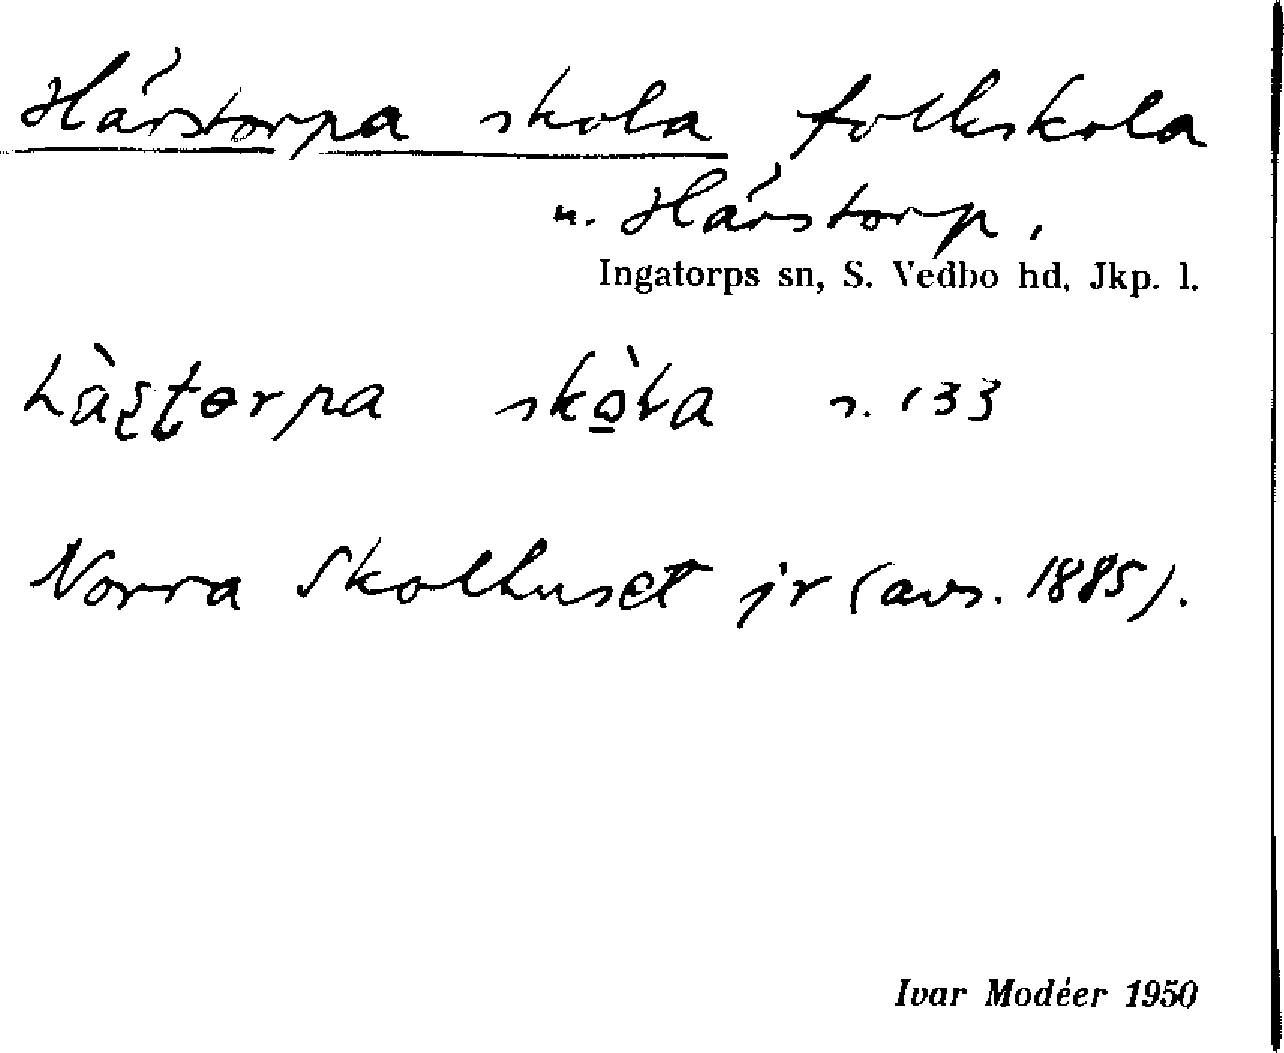 Hårstorpa skola folkskola
u. Hårstorp,
Ingatorps sn, S. Vedbo hd, Jkp. l.
skòla s. 133
Norra Skolhuset jr (avs. 1885).
Ivar Modéer 1950